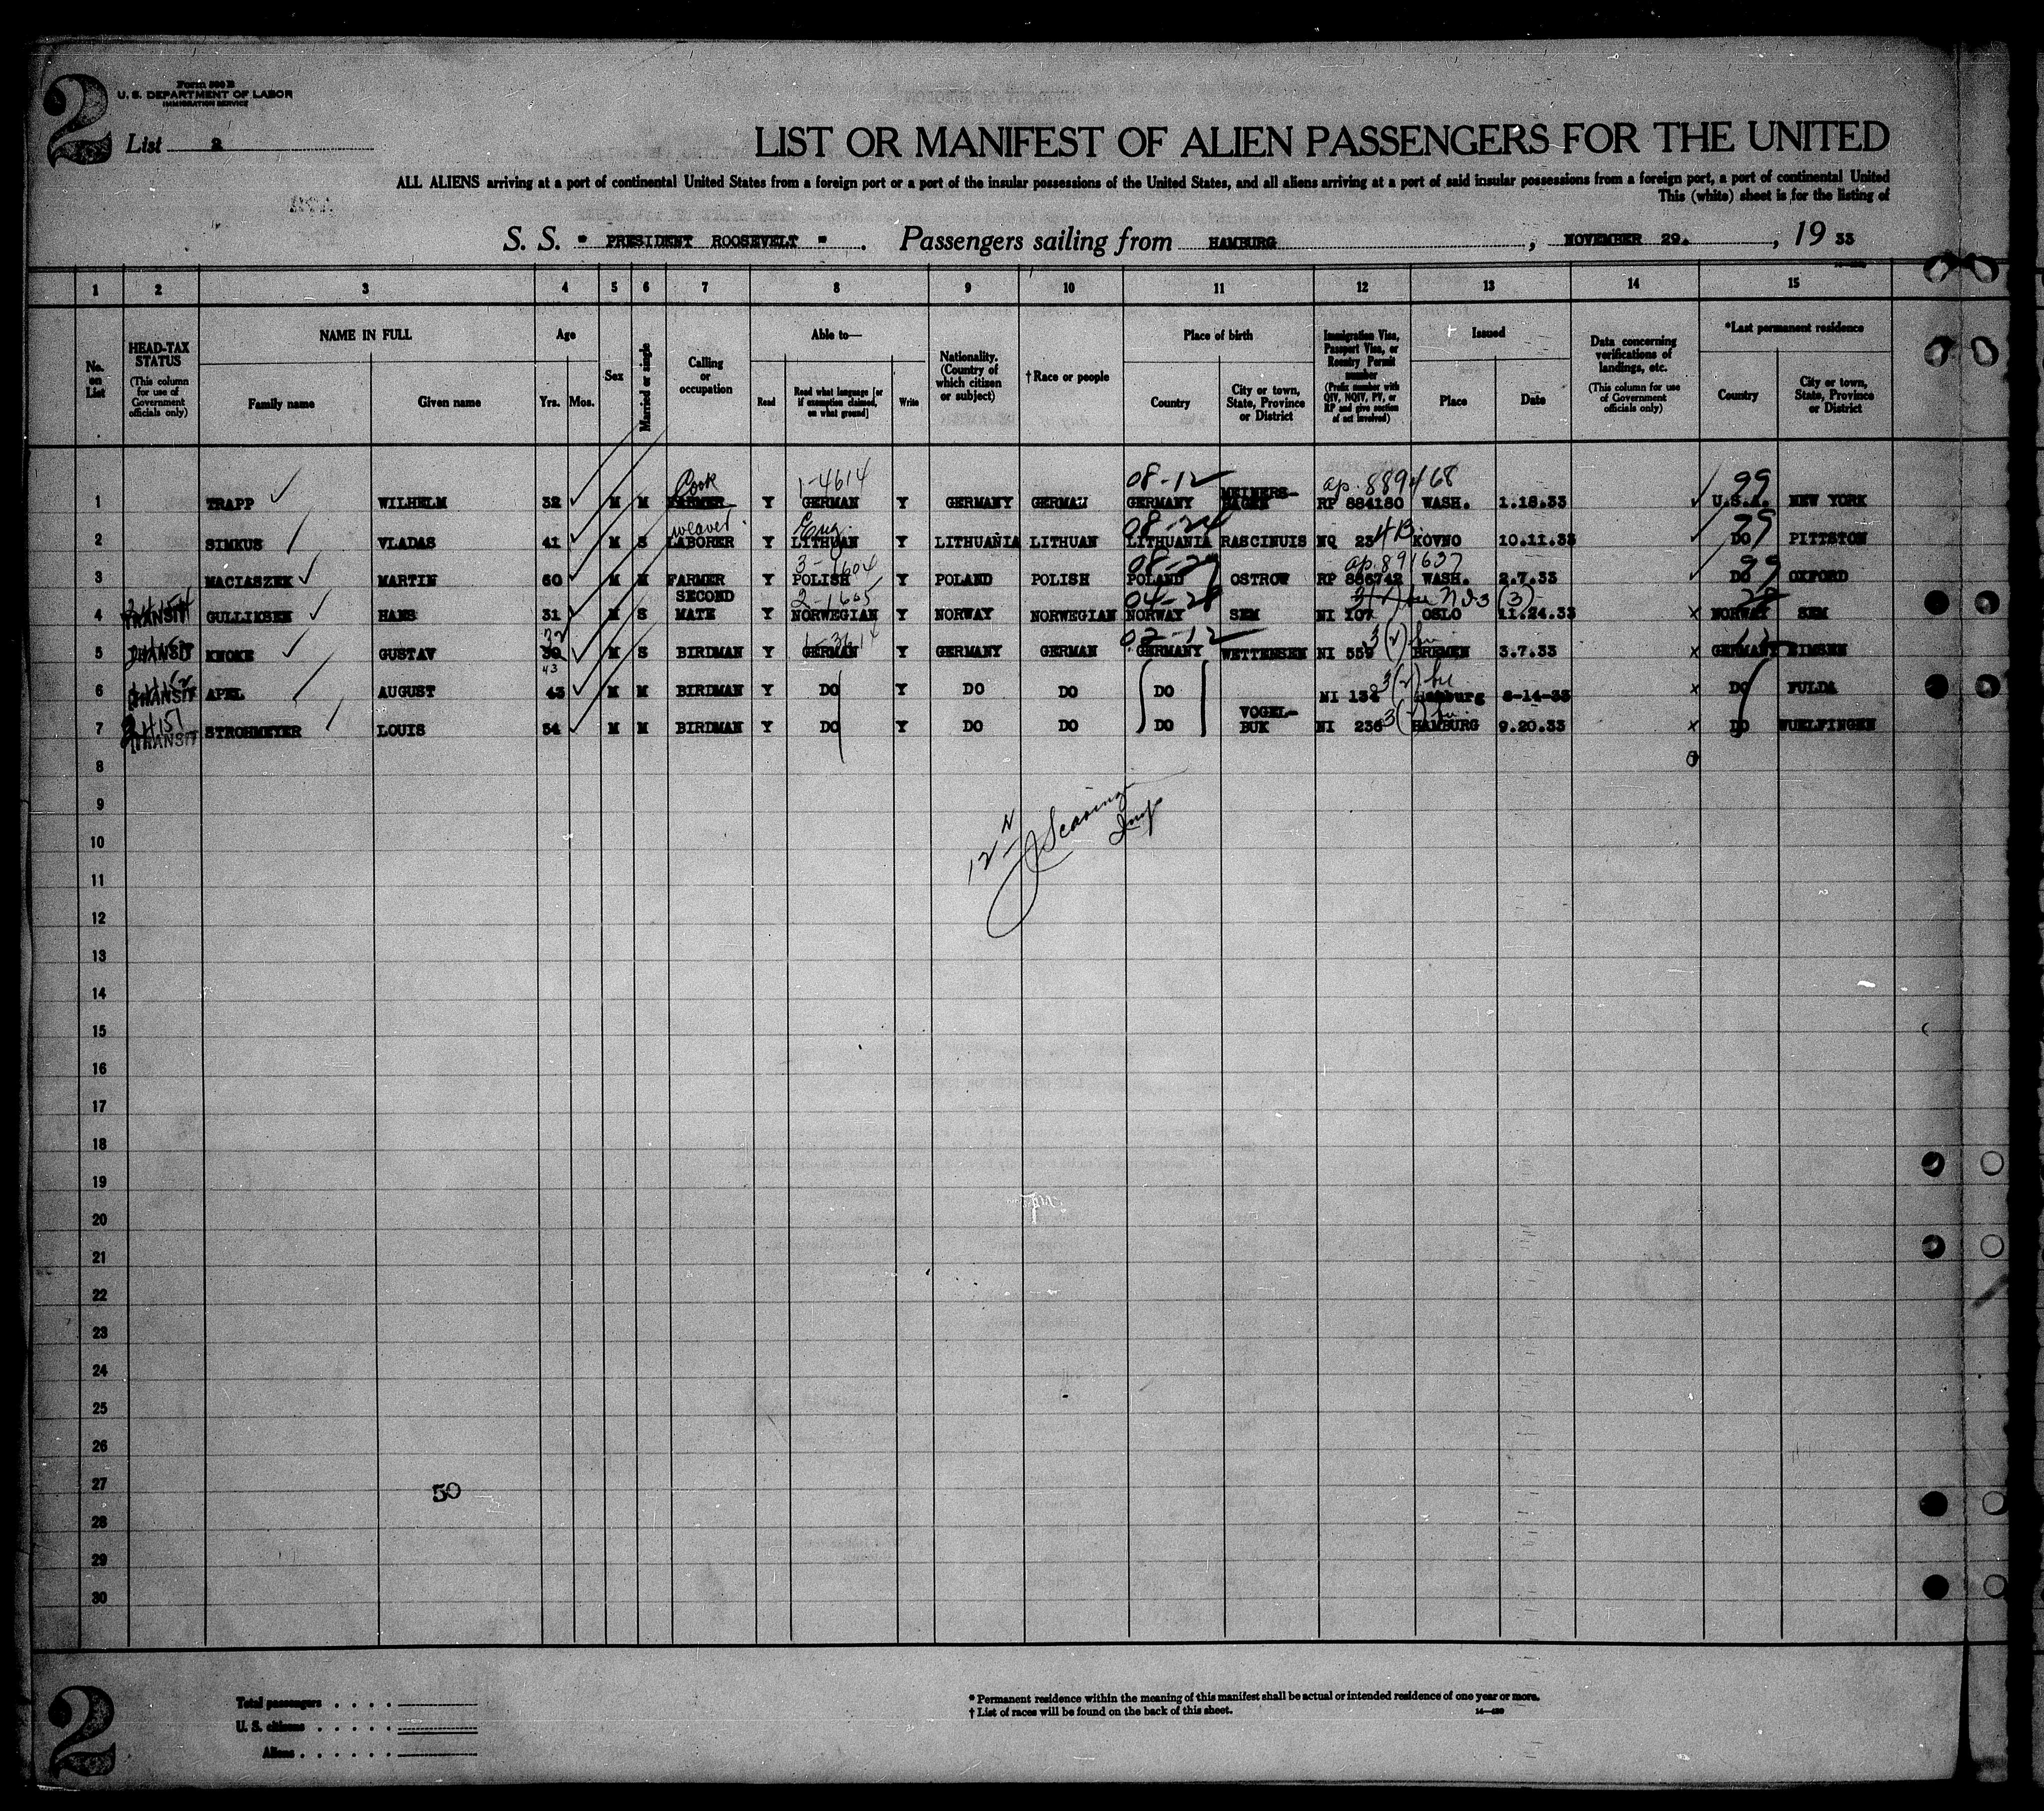 2
Form 500 B
U. S. DEPARTMENT OF LABOR
IMMIGRATION SERVICE
List 2
LIST OR MANIFEST OF ALIEN PASSENGERS FOR THE UNITED
ALL ALIENS arriving at a port of continental United States from a foreign port or a port of the insular possessions of the United States, and all aliens arriving at a port of said insular possessions from a foreign port, a port of continental United
This (white) sheet is for the listing of
S. S. " PRESIDENT ROOSEVELT " . Passengers sailing from HAMBURG , NOVEMBER 29. , 19 33
1 2 3 4 5 6 7 8 9 10 11 12 13 14 15
No. on List
HEAD-TAX STATUS (This column for use of Government officials only)
NAME IN FULL Family name Given name
Age Yrs. Mos.
Sex
Married or single
Calling or occupation
Able to— Read Read what language [or if exemption claimed, on what ground] Write
Nationality. (Country of which citizen or subject)
† Race or people
Place of birth Country City or town, State, Province or District
Immigration Visa, Passport Visa, or Reentry Permit number (Prefix number with QIV, NQIV, PV, or RP and give section of act involved)
Issued Place Date
Data concerning verifications of landings, etc. (This column for use of Government officials only)
*Last permanent residence Country City or town, State, Province or District
Cook 1-4614 08-12 ap. 889468 99
1 TRAPP WILHELM 32 M M FARMER Y GERMAN Y GERMANY GERMAN GERMANY MEINERS- HAGEN RP 884180 WASH. 1.18.33 U.S.A. NEW YORK
weaver. Eng. 99
2 SIMKUS VLADAS 41 M S LABORER Y LITHUAN Y LITHUANIA LITHUAN LITHUANIA RASCINUIS NQ 23 4B KOVNO 10.11.33 DO PITTSTON
3-1604 ap. 891637 99
3 MACIASZEK MARTIN 60 M M FARMER Y POLISH Y POLAND POLISH POLAND OSTROW RP 886742 WASH. 2.7.33 DO OXFORD
2-1605 04-28
4 TRANSIT GULLIKSEN HANS 31 M S SECOND MATE Y NORWEGIAN Y NORWAY NORWEGIAN NORWAY SEM NI 107 OSLO 11.24.33 NORWAY SEM
32 02-12
5 TRANSIT KNOKE GUSTAV M S BIRDMAN Y GERMAN Y GERMANY GERMAN GERMANY WETTENSEN NI 559 BREMEN 3.7.33 GERMANY EIMSEN
43
6 TRANSIT APEL AUGUST 43 M M BIRDMAN Y DO Y DO DO DO NI 134 Hamburg 8-14-33 DO FULDA
7 TRANSIT STROHMEYER LOUIS 54 M M BIRDMAN Y DO Y DO DO DO VOGEL- BUK NI 236 HAMBURG 9.20.33 DO WUELFINGEN
8
9
10
11
12
13
14
15
16
17
18
19
20
21
22
23
24
25
26
27
50
28
29
30
2
Total passengers
U. S. citizens
Aliens
* Permanent residence within the meaning of this manifest shall be actual or intended residence of one year or more.
† List of races will be found on the back of this sheet.